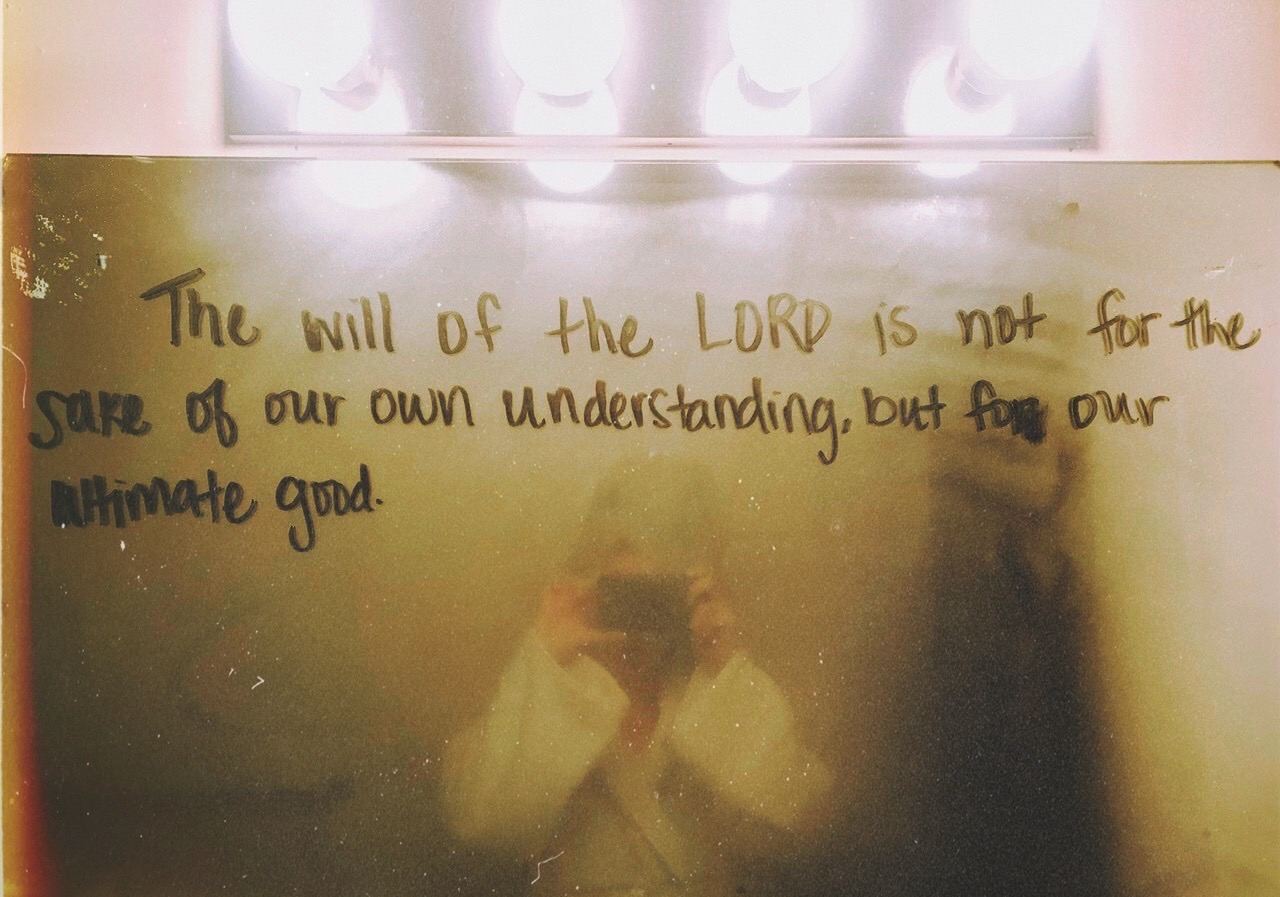 The will of the LORD is not for the
sake of our own understanding, but for our
ultimate good.